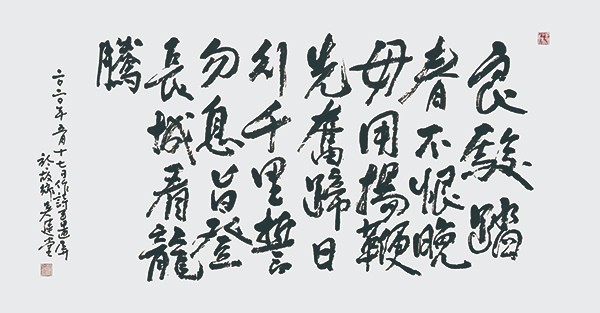 良駿踏
春不恨晚
毋用揚鞭
先奮蹄日
行千里誓
勿息旨登
長城看龍
騰
二〇二〇年五月十七日作詩
於故鄉